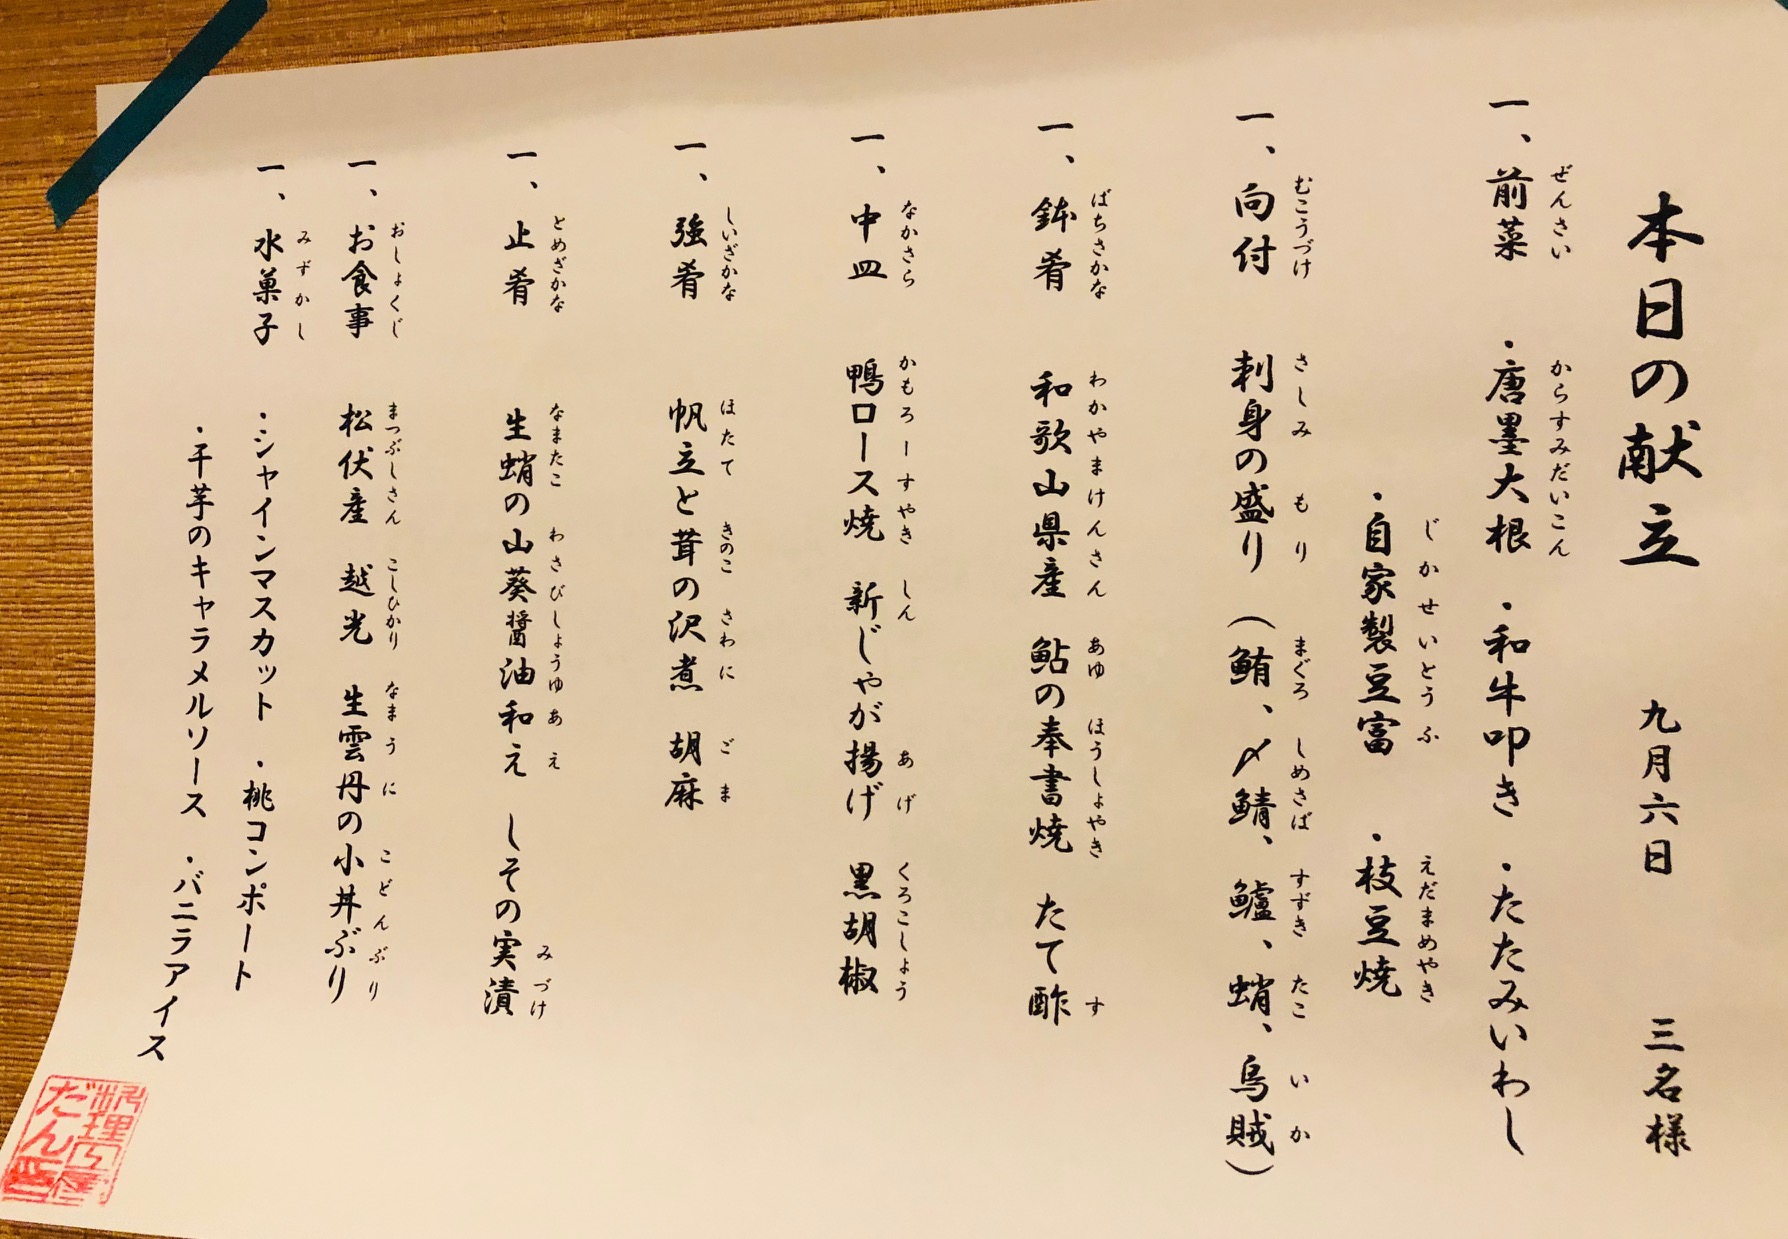 本日の献立　九月六日　三名様
一、前菜　・唐墨大根　・和牛叩き　・たたみいわし
ぜんさい　からすみだいこん
・自家製豆富　・枝豆焼
じかせいとうふ　えだまめやき
一、向付　刺身の盛り（鮪、〆鯖、鱸、蛸、烏賊）
むこうづけ　さしみ　もり　まぐろ　しめさば　すずき　たこ　いか
一、鉢肴　和歌山県産　鮎の奉書焼　たて酢
ばちさかな　わかやまけんさん　あゆ　ほうしょやき　す
一、中皿　鴨ロース焼　新じゃが揚げ　黒胡椒
なかさら　かもろーすやき　しん　あげ　くろこしょう
一、強肴　帆立と茸の沢煮　胡麻
しいざかな　ほたて　きのこ　さわに　ごま
一、止肴　生蛸の山葵醤油和え　しその実漬
とめざかな　なまたこ　わさびしょうゆ　あえ　みづけ
一、お食事　松伏産　越光　生雲丹の小丼ぶり
おしょくじ　まつぶしさん　こしひかり　なまうに　こどんぶり
一、水菓子　・シャインマスカット　・桃コンポート
みずかし
・干芋のキャラメルソース　・バニラアイス
料理
だん